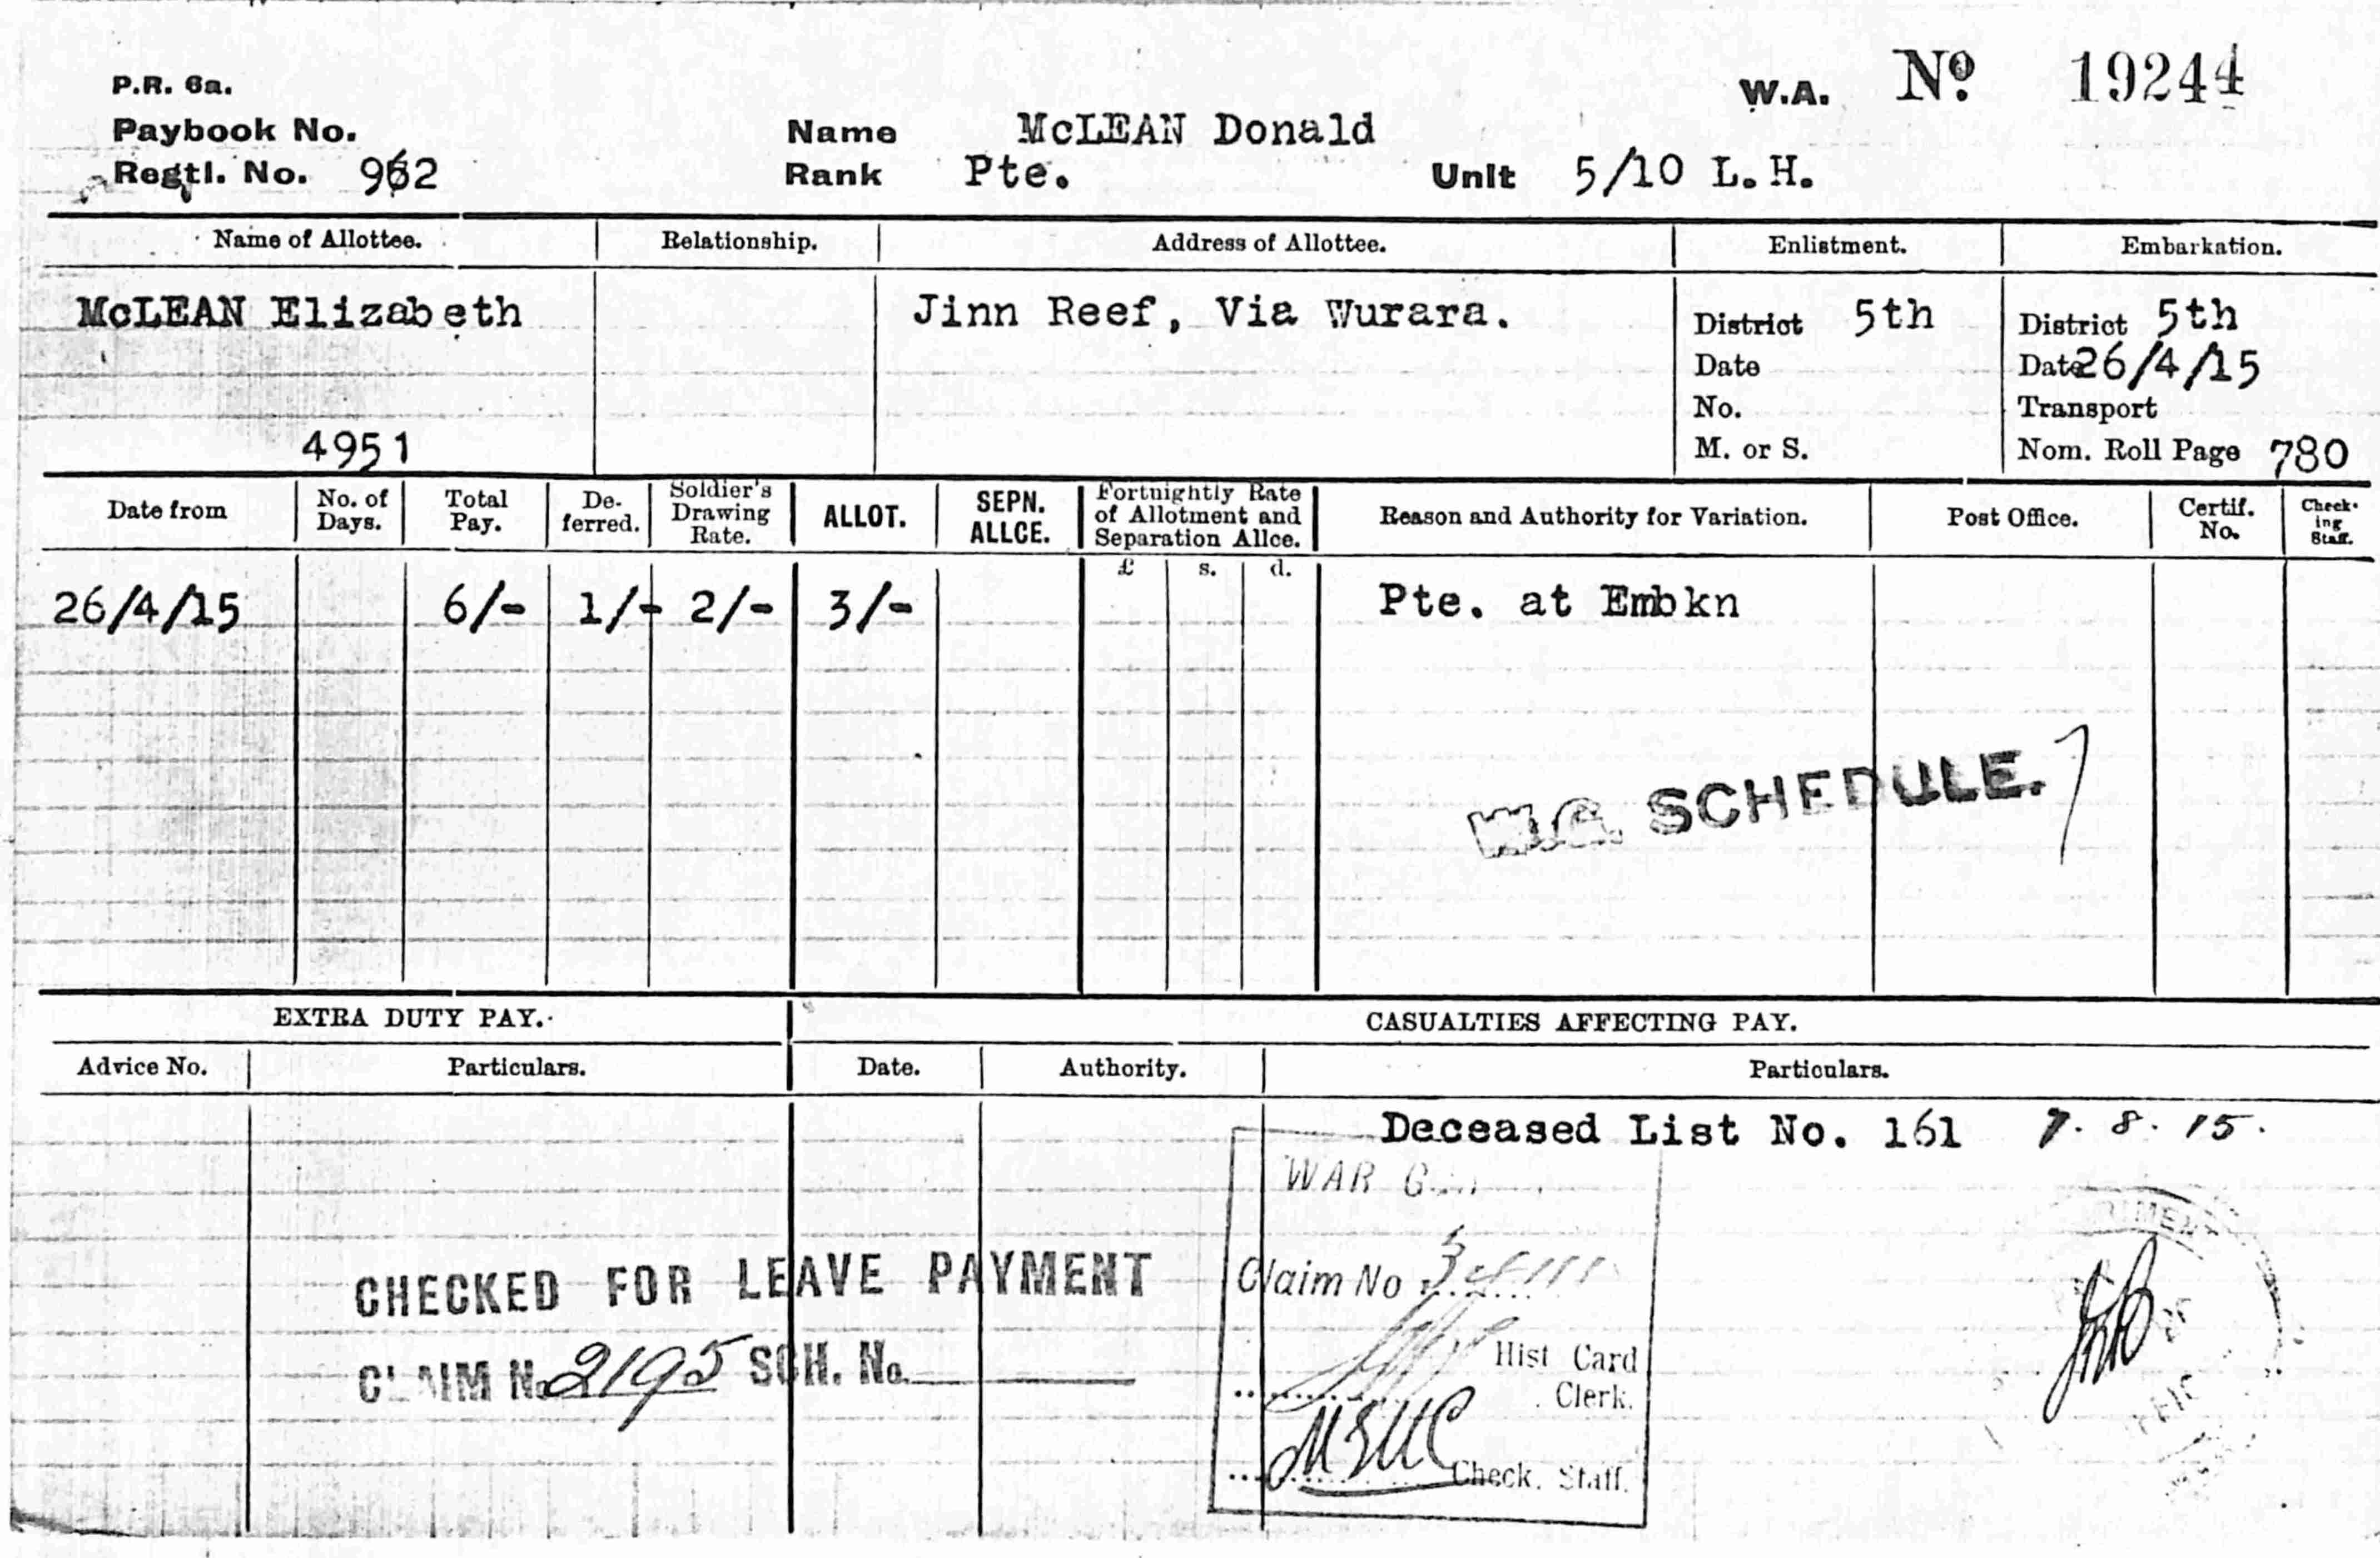 P.R. 6a.
W.A. Nº 19244
Paybook No.
Name McLEAN Donald
Regtl. No. 962
Rank Pte. Unit 5/10 L.H.
Name of Allottee. Relationship. Address of Allottee. Enlistment. Embarkation.
McLEAN Elizabeth Jinn Reef, Via Wurara. District 5th District 5th
Date Date 26/4/15
No. Transport
4951 M. or S. Nom. Roll Page 780
Date from No. of Days. Total Pay. De-ferred. Soldier's Drawing Rate. ALLOT. SEPN. ALLCE. Fortnightly Rate of Allotment and Separation Allce. Reason and Authority for Variation. Post Office. Certif. No. Check-ing Staff.
£ s. d.
26/4/15 6/- 1/- 2/- 3/- Pte. at Embkn
W.G. SCHEDULE.
EXTRA DUTY PAY. CASUALTIES AFFECTING PAY.
Advice No. Particulars. Date. Authority. Particulars.
Deceased List No. 161 7.8.15.
WAR
CHECKED FOR LEAVE PAYMENT
Claim No
CLAIM No. 2195 SCH. No.
Hist Card
Clerk.
Check. Staff.